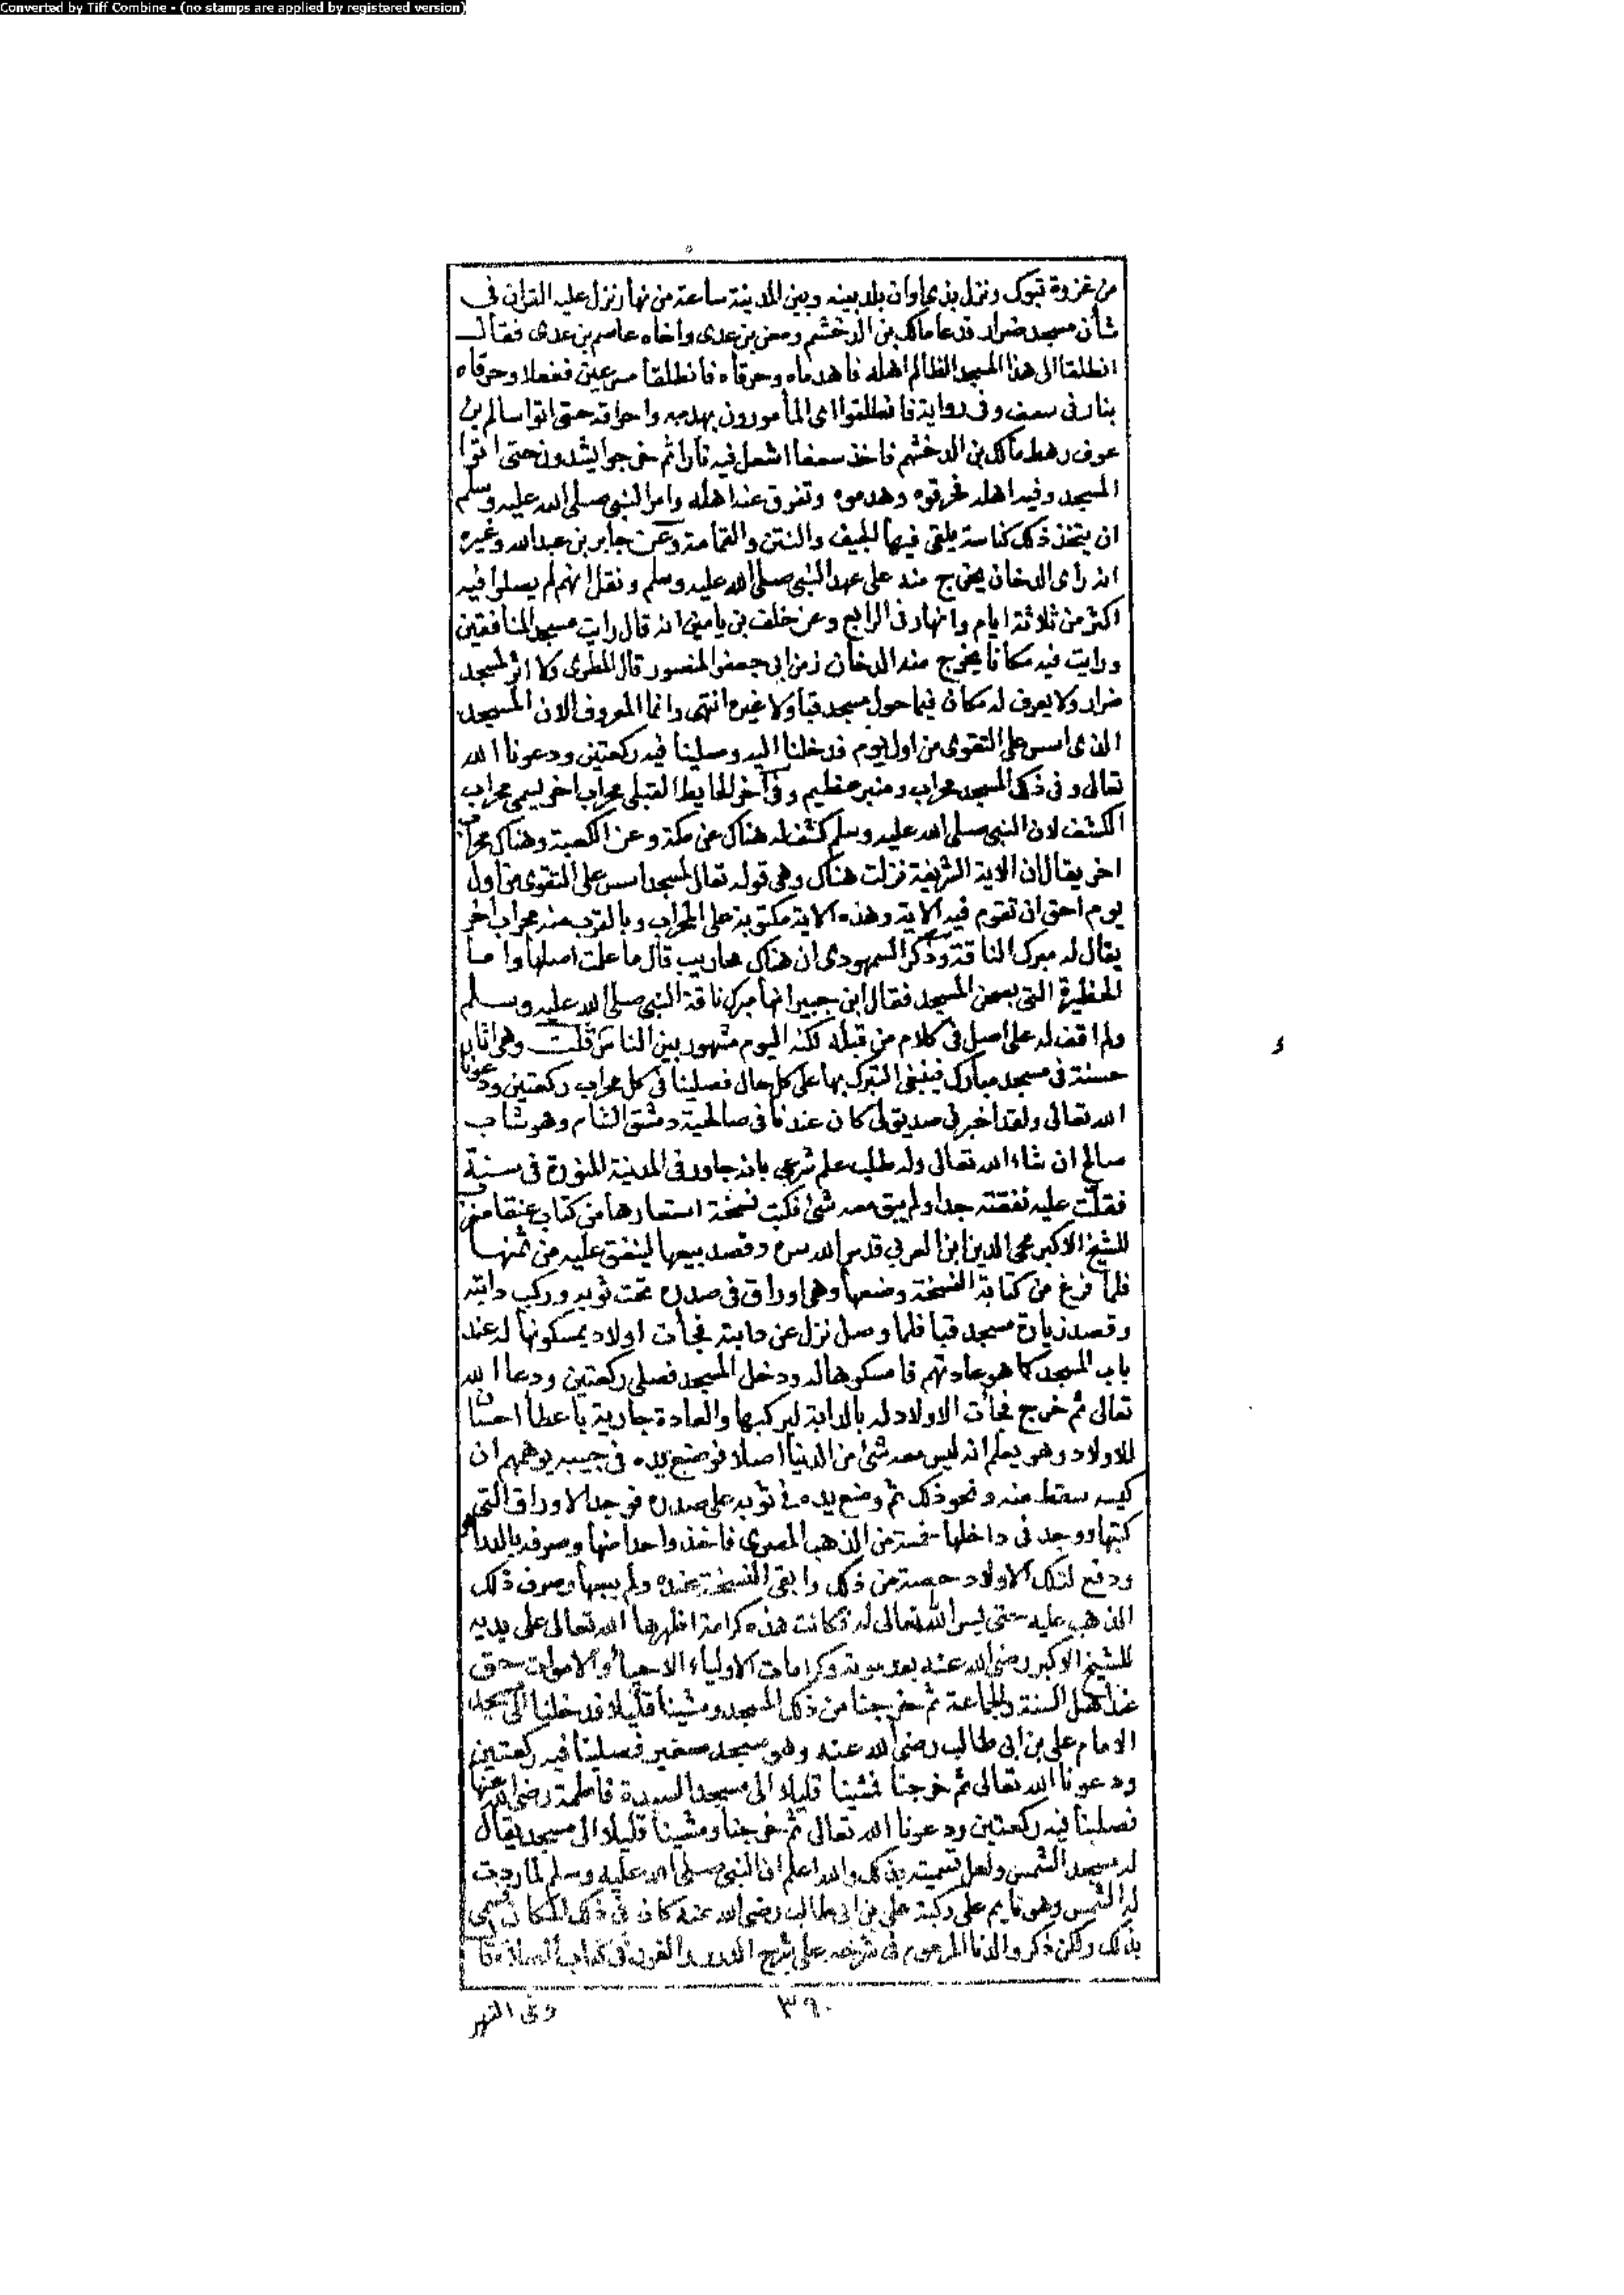 Converted by Tiff Combine - (no stamps are applied by registered version)
من غزوة تبوك ونزل بذى اوان بلد بينه وبين المدينة ساعة من نهار نزل عليه القران فى
شأن مسجد ضرار فدعا مالك بن الدخشم ومعن بن عدى واخاه عاصم بن عدى فقال
انطلقا الى هذا المسجد الظالم اهله فاهدماه وحرقاه فانطلقا مسرعين ففعلا وحرقاه
بنار فى سعف وفى رواية فانطلقوا اى المأمورون بهدمه واحراقه حتى اتوا سالم بن
عوف رهط مالك بن الدخشم فاخذ سعفا اشعل فيه نارا ثم خرجوا يشدون حتى اتوا
المسجد وفيه اهله فحرقوه وهدموه وتفرق عنه اهله وامر النبى صلى الله عليه وسلم
ان يتخذ ذلك كناسة يلقى فيها الجيف والنتن والقمامة وعن جابر بن عبدالله وغيره
انه راى الدخان يخرج منه على عهد النبى صلى الله عليه وسلم ونقل انهم لم يصلوا فيه
اكثر من ثلاثة ايام وانهار فى الرابع وعن خلف بن يامين انه قال رايت مسجد المنافقين
ورايت فيه مكانا يخرج منه الدخان زمن ابى جعفر المنصور قال المطرى ولا اثر لمسجد
ضرار ولا يعرف له مكان فيما حول مسجد قبا ولا غيره انتهى وانما المعروف الان المسجد
الذى اسس على التقوى من اول يوم فدخلنا اليه وصلينا فيه ركعتين ودعونا الله
تعالى وفى ذلك المسجد محراب ومنبر عظيم وفى آخر الحايط القبلى محراب اخر يسمى محراب
الكشف لان النبى صلى الله عليه وسلم كشف له هناك عن مكة وعن الكعبة وهناك محراب
اخر يقال ان الاية الشريفة نزلت هناك وهى قوله تعالى لمسجد اسس على التقوى من اول
يوم احق ان تقوم فيه الاية وهذه الاية مكتوبة على المحراب وبالقرب منه محراب اخر
يقال له مبرك الناقة وذكر السمهودى ان هناك محاريب قال ما علمت اصلها واما
الحظيرة التى بصحن المسجد فقال ابن جبير انها مبرك ناقة النبى صلى الله عليه وسلم
ولم اقف له على اصل فى كلام من قبله لكنه اليوم مشهور بين الناس قلت وهى اثار
حسنة فى مسجد مبارك فينبغى التبرك بها على كل حال فصلينا فى كل محراب ركعتين ودعونا
الله تعالى ولقد اخبرنى صديق لى كان عندنا فى صالحية دمشق الشام وهو شاب
صالح ان شاء الله تعالى وله طلب علم شرعى بانه جاور فى المدينة المنورة فى سنة
فقلت عليه نفقته جدا ولم يبق معه شئ فكتب نسخة استعارها من كتاب عنقا مغرب
للشيخ الاكبر محى الدين ابن العربى قدس الله سره وقصد بيعها لينفق عليه من ثمنها
فلما فرغ من كتابة النسخة وضعها وهى اوراق فى صدره تحت ثوبه وركب دابته
وقصد زيارة مسجد قبا فلما وصل نزل عن دابته فجأت اولاد يمسكونها له عند
باب المسجد كما هو عادتهم فامسكوها له ودخل المسجد فصلى ركعتين ودعا الله
تعالى ثم خرج فجأت الاولاد له بالدابة ليركبها والعادة جارية باعطا احسان
للاولاد وهو يعلم انه ليس معه شئ من الدنيا اصلا فوضع يده فى جيبه يوهمهم ان
كيسه سقط منه ونحو ذلك ثم وضع يده فى ثوبه على صدره فوجد الاوراق التى
كتبها ووجد فى داخلها خمسة من الذهب المصرى فاخذ واحدا منها وصرفه بالدراهم
ودفع لتلك الاولاد حصة من ذلك وابقى النسخة عنده ولم يبعها وصرف ذلك
الذهب عليه حتى يسر الله تعالى له فكانت هذه كرامة اظهرها الله تعالى على يديه
للشيخ الاكبر رضى الله عنه بعد موته وكرامات الاولياء الاحيا والاموات حق
عند اهل السنة والجماعة ثم خرجنا من ذلك المسجد ومشينا قليلا فدخلنا الى مسجد
الامام على بن ابى طالب رضى الله عنه وهو مسجد صغير فصلينا فيه ركعتين
ودعونا الله تعالى ثم خرجنا فمشينا قليلا الى مسجد السيدة فاطمة رضى الله عنها
فصلينا فيه ركعتين ودعونا الله تعالى ثم خرجنا ومشينا قليلا الى مسجد يقال
له مسجد الشمس ولعل تسميته بذلك والله اعلم ان النبى صلى الله عليه وسلم لما ردت
له الشمس وهو نايم على ركبة على بن ابى طالب رضى الله عنه كان فى ذلك المكان فسمى
بذلك ولكن ذكر والدنا المرحوم فى شرحه على شرح الدرر والغرر فى كتاب الصلاة قا
٣٦٠
وفى النهر